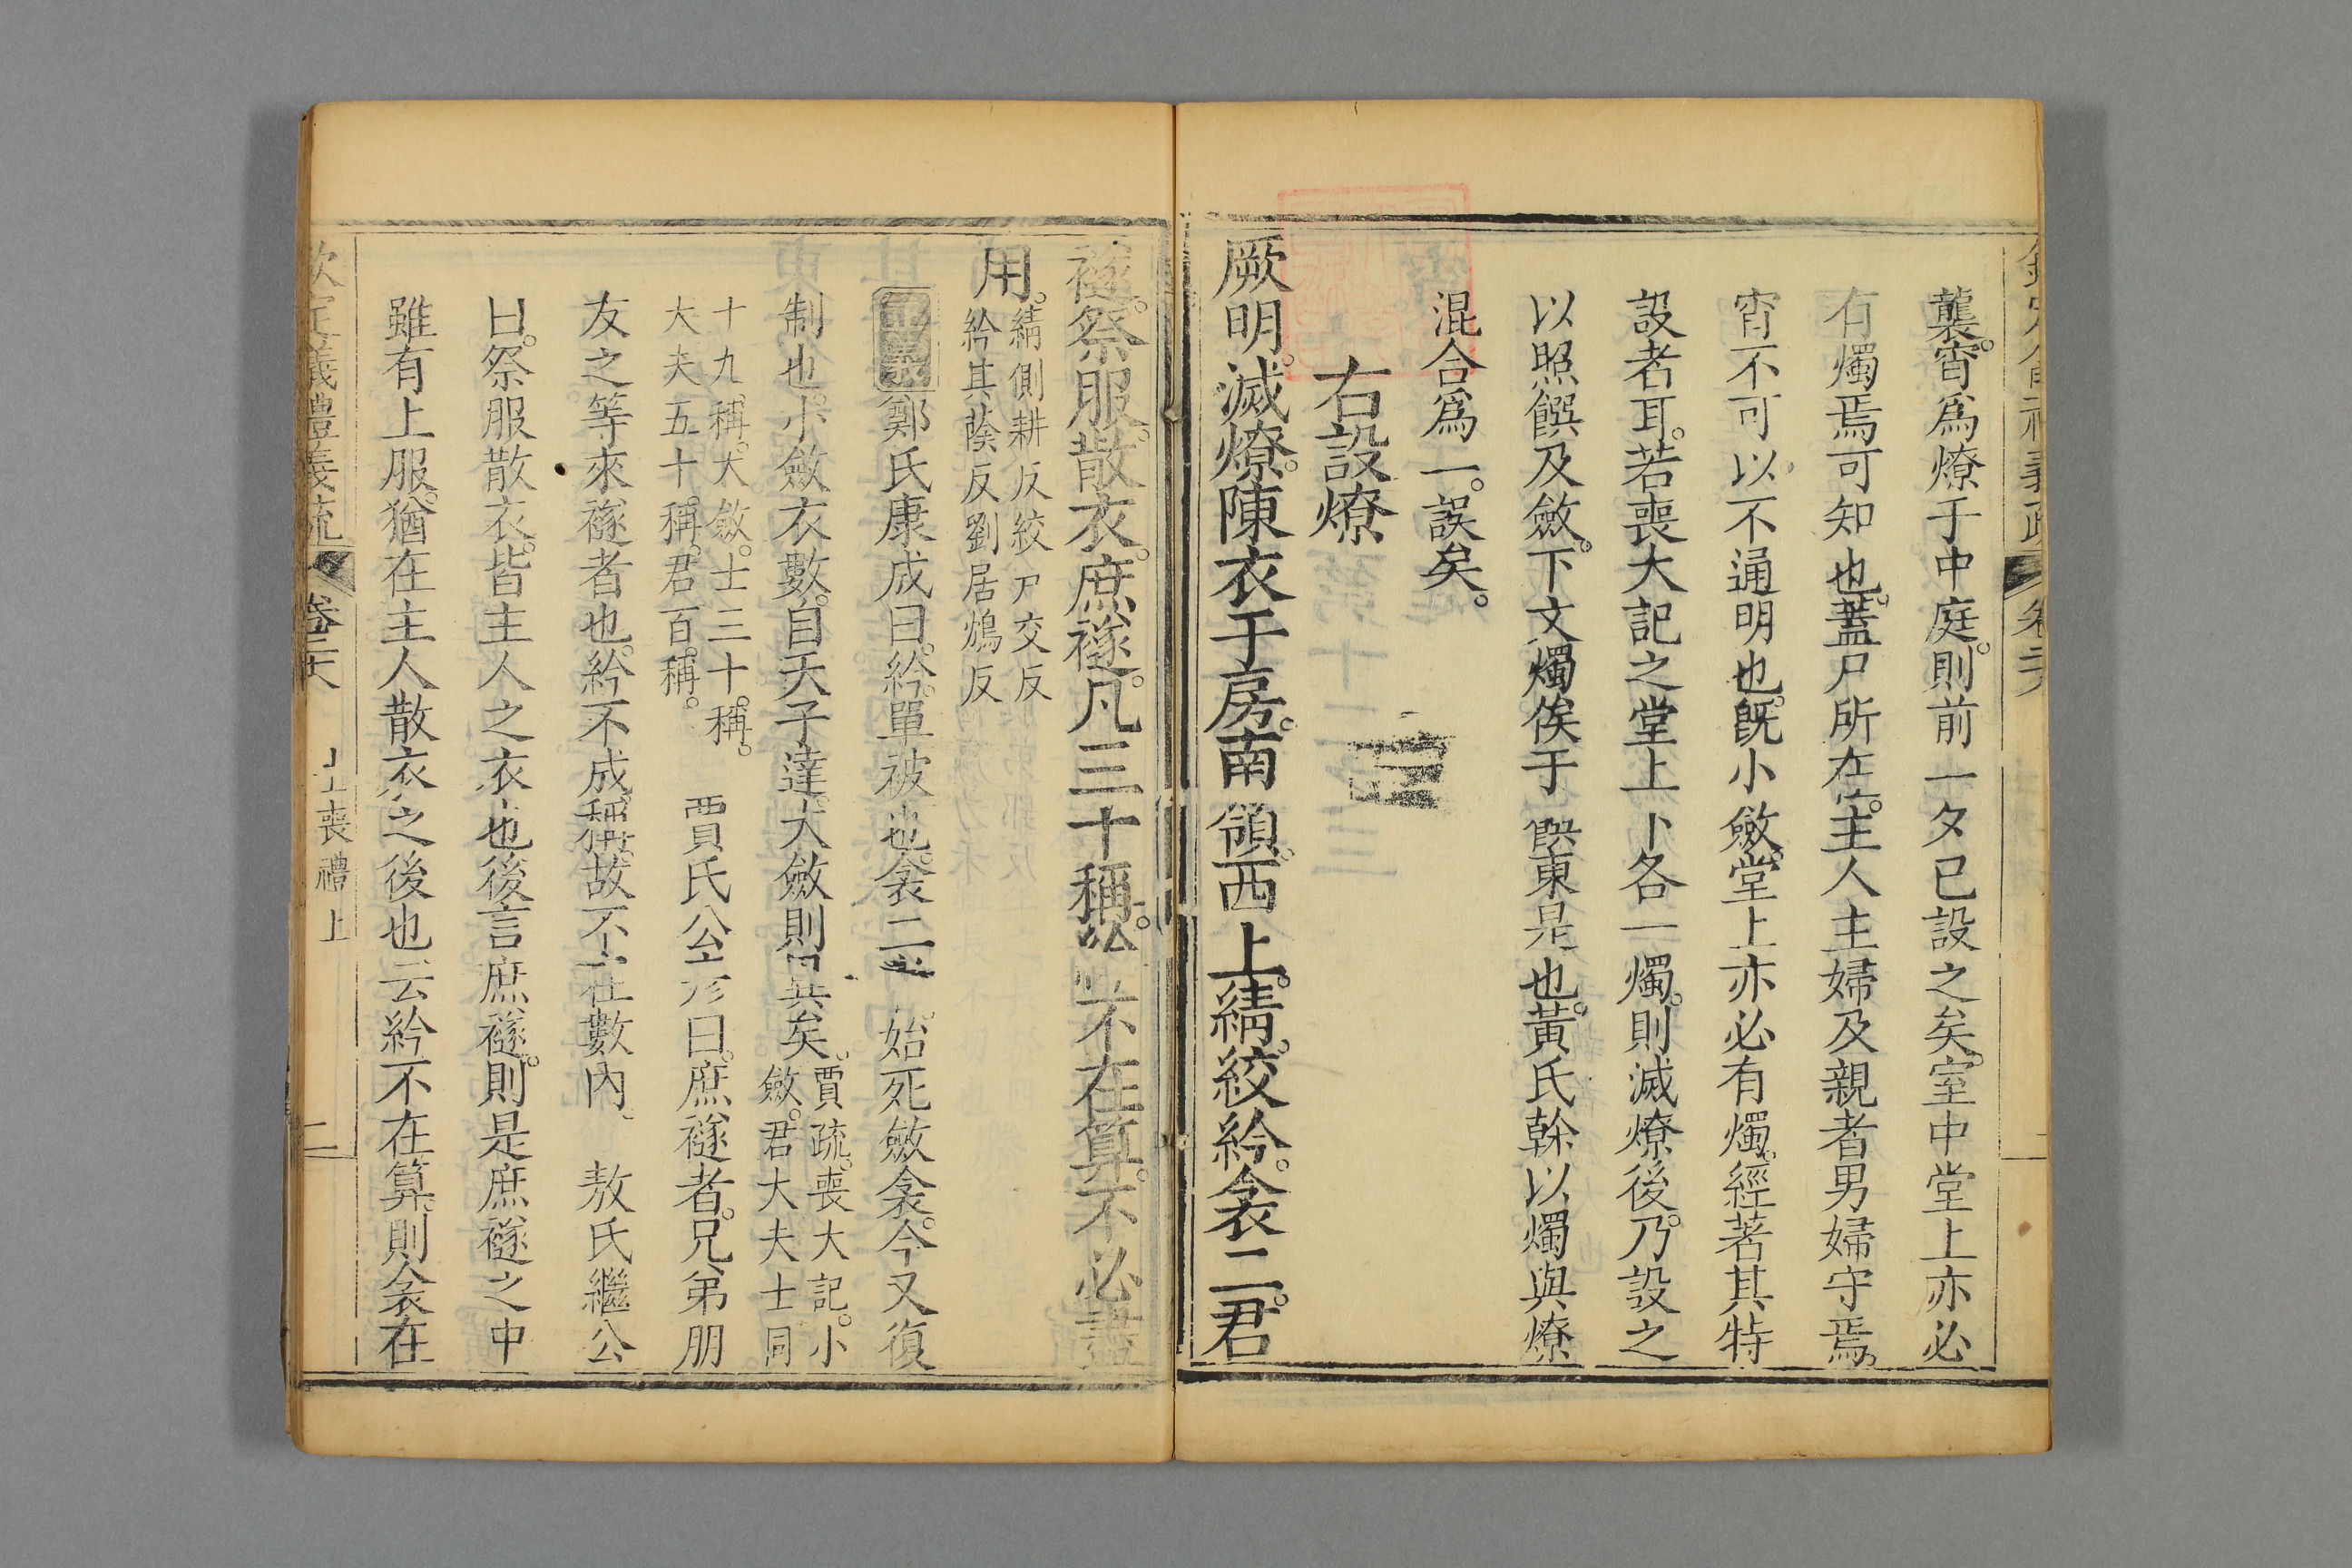 襲。宵爲燎于中庭。則前一夕已設之矣。室中堂上亦必
有燭焉可知也。蓋尸所在。主人主婦及親者男婦守焉。
宵不可以不通明也。既小斂。堂上亦必有燭。經著其特
設者耳。若喪大記之堂上下各一燭。則滅燎後。乃設之
以照饌及斂。下文燭俟于饌東是也。黃氏榦以燭與燎
混合爲一。誤矣。
右設燎
厥明。滅燎。陳衣于房。南領。西上。綪。絞紟。衾二。君
襚。祭服。散衣。庶襚。凡三十稱。紟不在算。不必盡
用。綪側耕反絞戸交反
紟其蔭反劉居鴆反
鄭氏康成曰。紟。單被也。衾二 始死斂衾。今又復
制也。小斂衣數。自天子達。大斂則異矣。賈疏。喪大記。小
斂。君大夫士同
十九稱。大斂。士三十稱。
大夫五十稱。君百稱。
賈氏公彥曰。庶襚者。兄弟朋
友之等來襚者也。紟不成稱。故不在數內。 敖氏繼公
曰。祭服散衣。皆主人之衣也後言庶襚。則是庶襚之中
雖有上服。猶在主人散衣之後也云紟不在算。則衾在
欽定儀禮義疏 卷二十八 士喪禮上 二